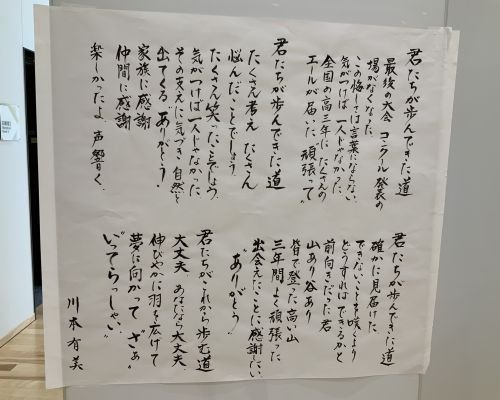 君たちが歩んできた道
最後の大会 コンクール 発表の
場がなくなった
この悔しさは言葉にならない
気がつけば 一人じゃなかった
全国の高三年に たくさんの
エールが届いた“頑張って”
君たちが歩んできた道
たくさん考え たくさん
悩んだことでしょう
たくさん笑ったことでしょう
気がつけば 一人じゃなかった
その支えに気づき 自然と
出てくる“ありがとう”
家族に感謝
仲間に感謝
楽しかったよ 声響く
君たちが歩んできた道
確かに見届けた
できないことを嘆くより
どうすれば できるかと
前向きだった君
山あり谷あり
皆で登った高い山
三年間よく頑張った
出会えたことに感謝したい
“ありがとう”
君たちがこれから歩む道
大丈夫 あなたなら大丈夫
伸びやかに羽を広げて
夢に向かって さぁ
“いってらっしゃい”
川本有美